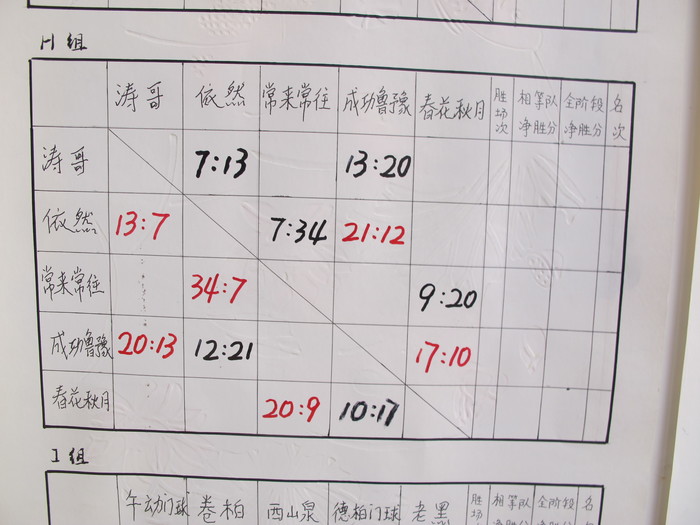 H组
涛哥 依然 常来常往 成功鲁豫 春花秋月 胜场次 相等队净胜分 全阶段净胜分 名次
涛哥 7:13 13:20
依然 13:7 7:34 21:12
常来常往 34:7 9:20
成功鲁豫 20:13 12:21 17:10
春花秋月 20:9 10:17
I组
午动门球 卷柏 西山泉 德柏门球 老黑 胜 相等队 全阶段 名